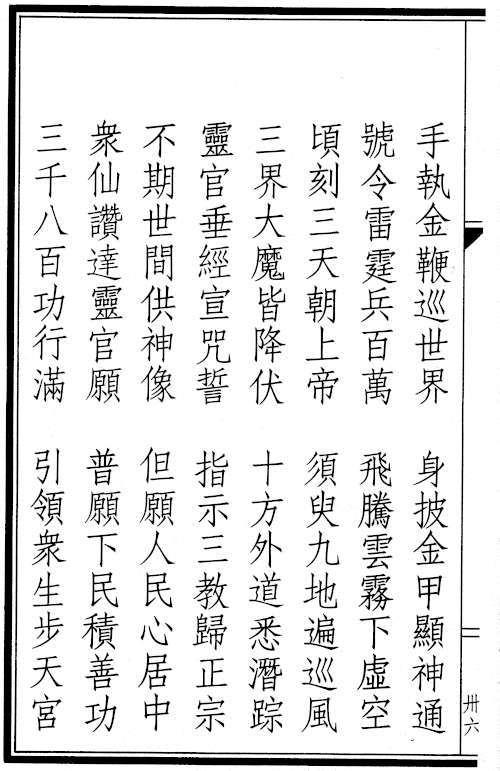 手執金鞭巡世界　身披金甲顯神通
號令雷霆兵百萬　飛騰雲霧下虛空
頃刻三天朝上帝　須臾九地遍巡風
三界大魔皆降伏　十方外道悉潛踪
靈官垂經宣咒誓　指示三教歸正宗
不期世間供神像　但願人民心居中
衆仙讚達靈官願　普願下民積善功
三千八百功行滿　引領衆生步天宮
卅六